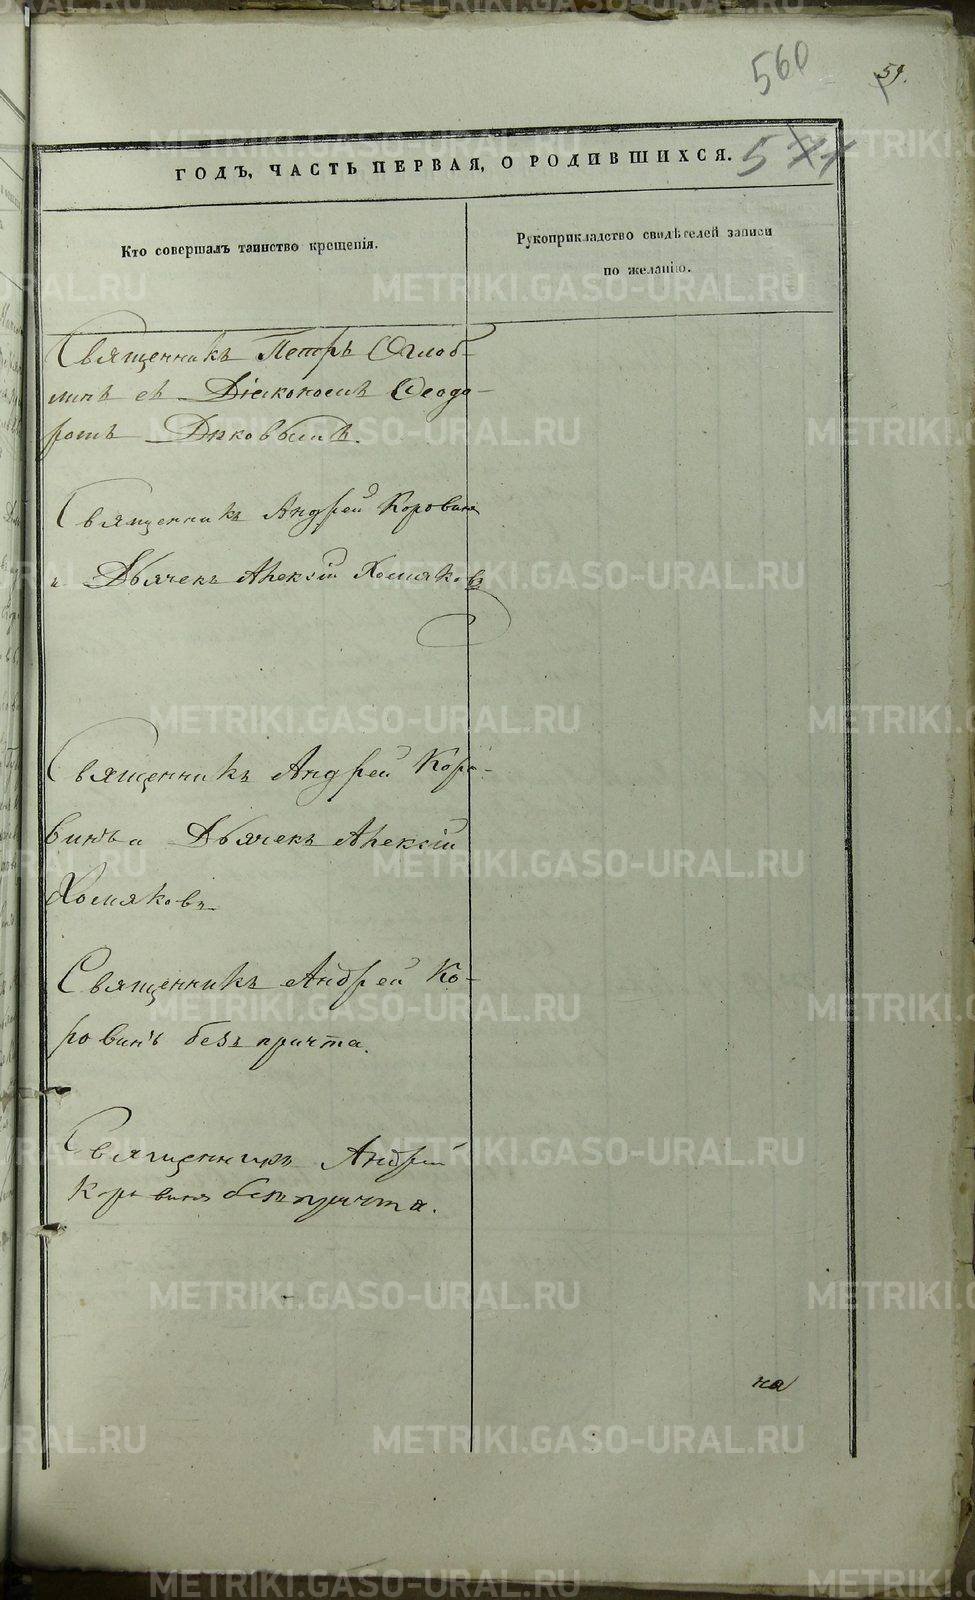 560
59.
ГОДЪ, ЧАСТЬ ПЕРВАЯ, О РОДИВШИХСЯ.
Кто совершалъ таинство крещенія.
Рукоприкладство свидѣтелей записи
по желанію.
Священникъ Петръ Оглоб-
линъ съ Діакономъ Ѳеодо-
ромъ Дьковымъ.
Священникъ Андрей Коровинъ
и Дьячекъ Алексій Хомяковъ
Священникъ Андрей Коро-
винъ и Дьячекъ Алексій
Хомяковъ
Священникъ Андрей Ко-
ровинъ безъ причта.
Священникъ Андрей
Коровинъ безъ причта.
на
METRIKI.GASO-URAL.RU